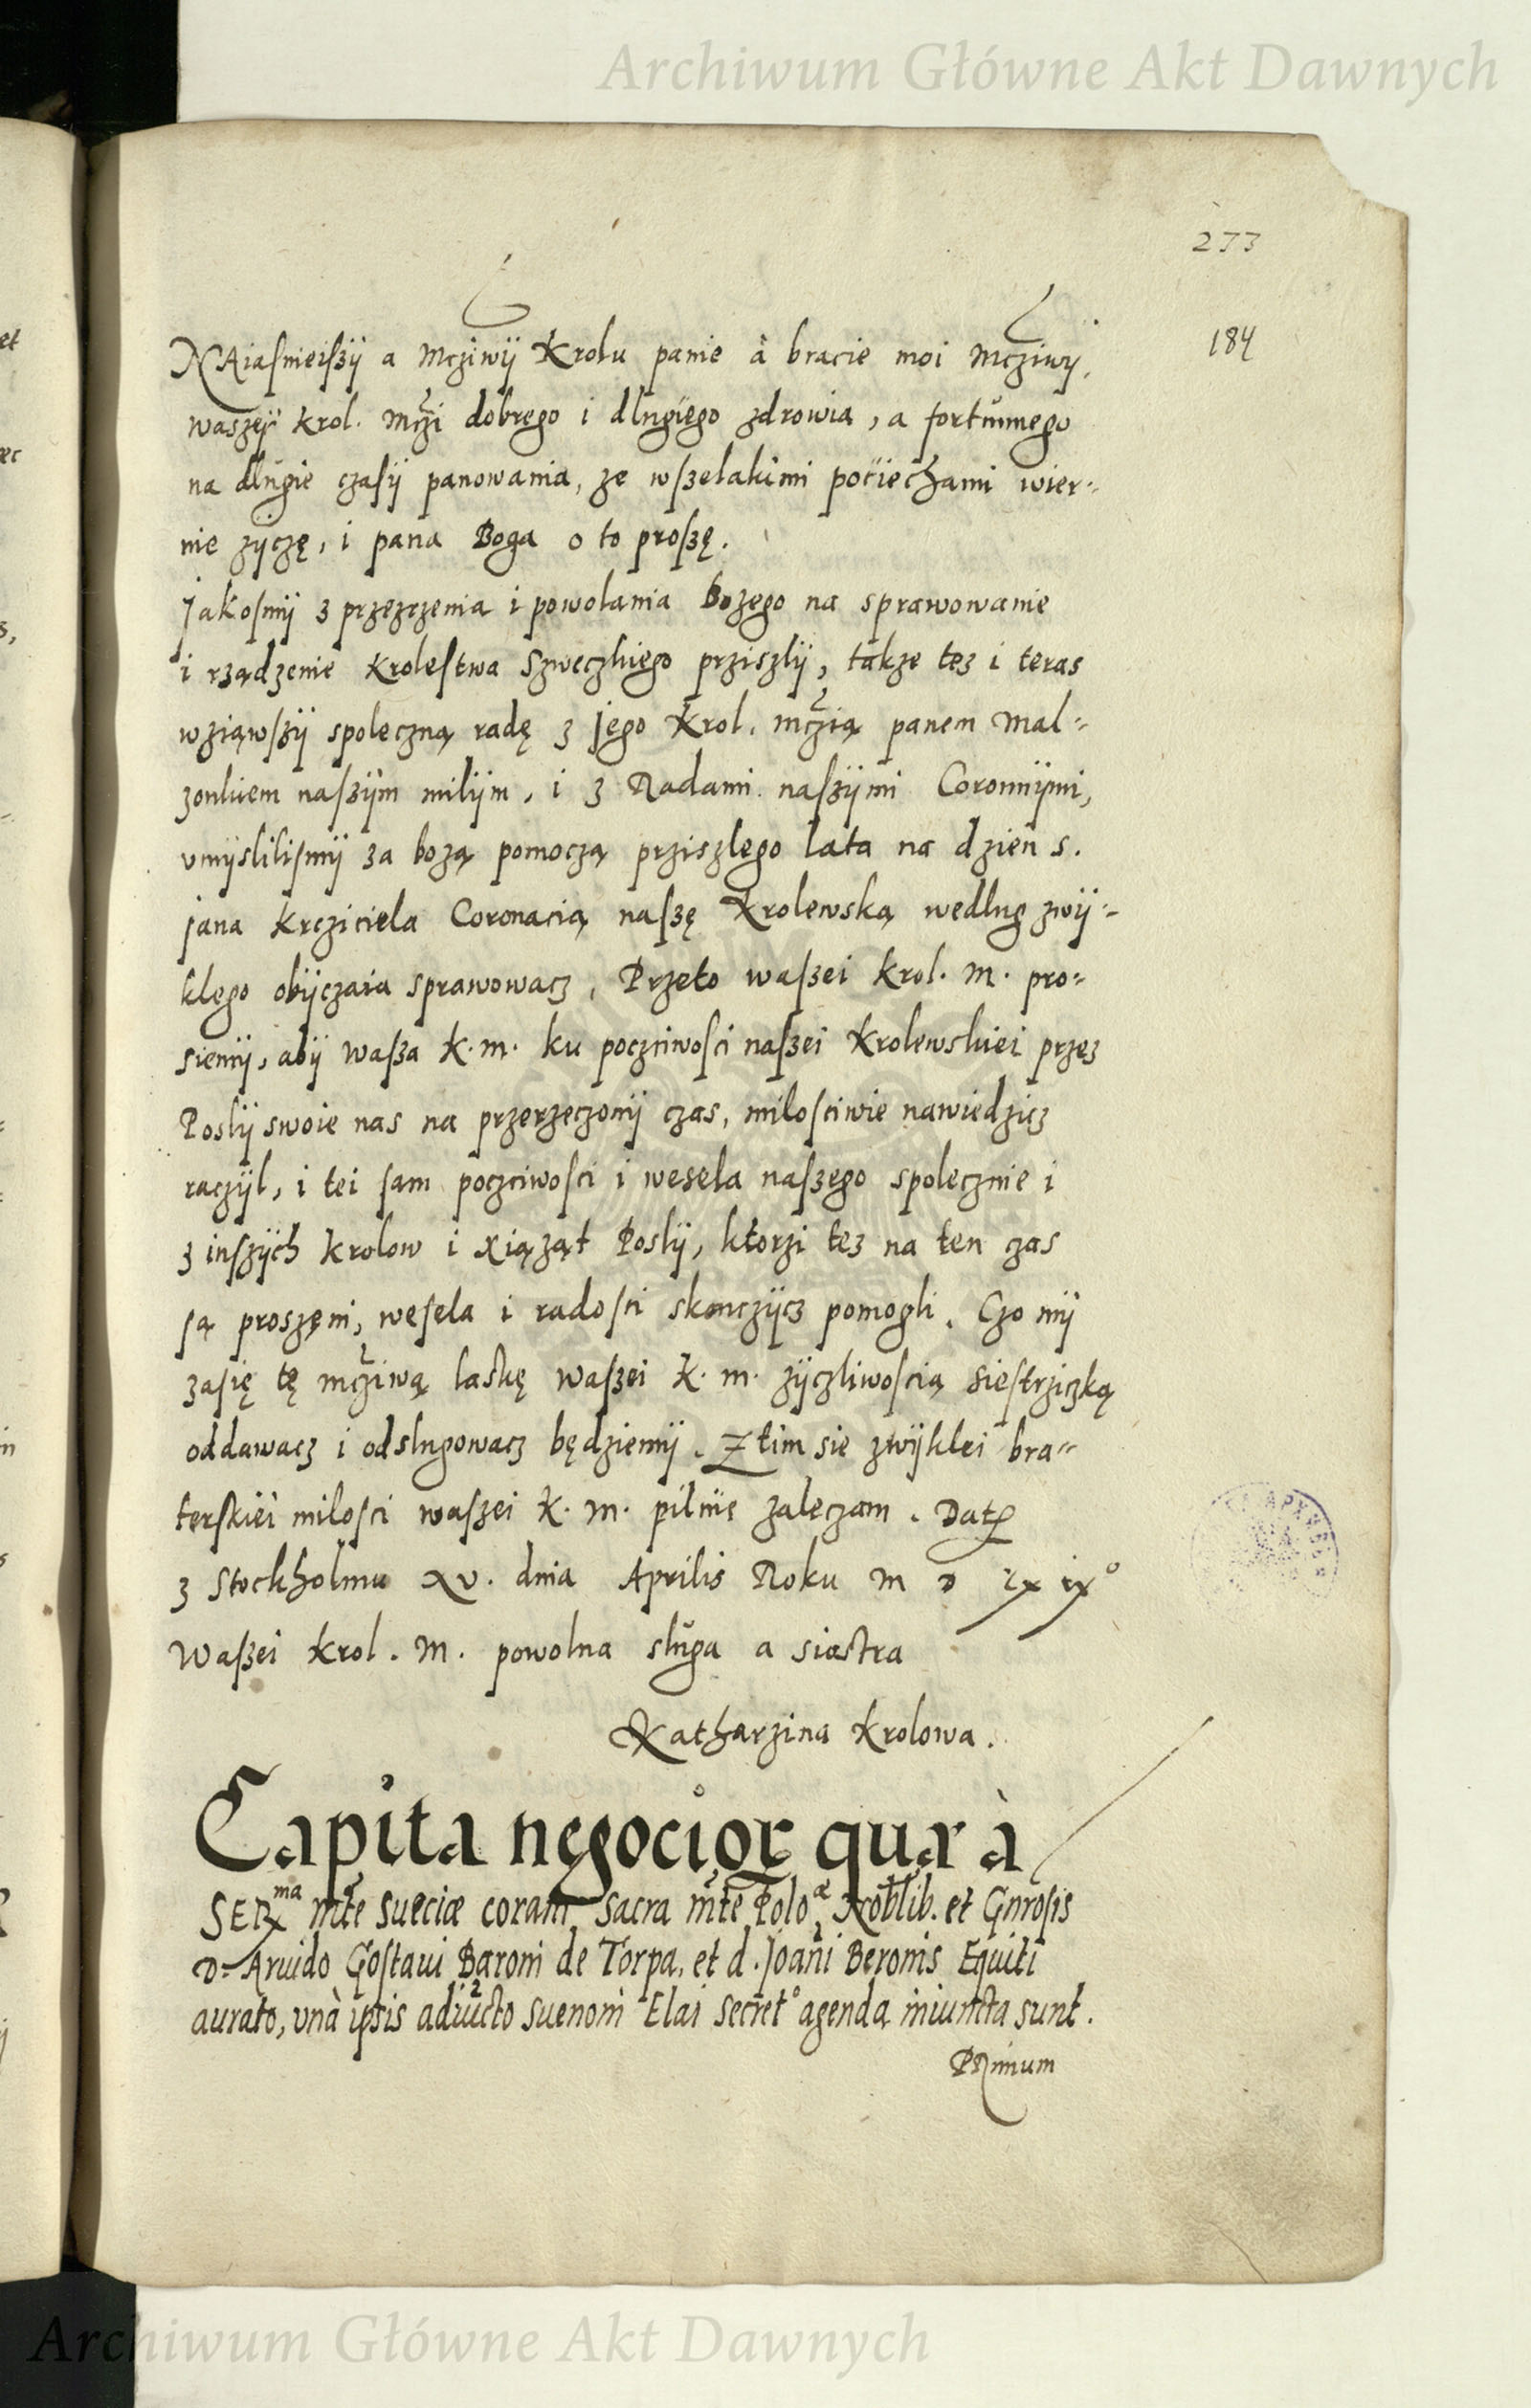 Archiwum Główne Akt Dawnych
273
184
NAiasnieiszÿ a Mcżiwÿ Krolu panie à bracie moi Mcżiwÿ,
waszeÿ krol. Mcżi dobrego i dlugiego zdrowia, a fortunnego
na dlugie czasÿ panowania, ze wszelakimi pociechami wier=
nie zÿczę, i pana Boga o to proszę.
Jakosmÿ z przezrzenia i powolania Bozego na sprawowanie
i rządzenie krolestwa Szweczkiego prziszlÿ, takze tez i teras
wziąwszÿ spoleczną radę z jego Krol. mcżią panem Mal=
zonkiem naszÿm milÿm, i z Radami naszÿmi Coronnÿmi,
vmÿslilismÿ za bozą pomoczą prziszlego lata na dzien s.
jana krcziciela Coronacią naszę Krolewską wedlug zwÿ=
klego obÿczaia sprawowacz, Przeto waszei krol. m. pro=
siemÿ, abÿ wasza k. m. ku pocziwosci naszei Krolewskiei przez
Poslÿ swoie nas na przerzeczonÿ czas, milosciwie nawiedzicz
raczÿl, i tei sam poczciwosci i wesela naszego spolecznie i
z inszÿch krolow i xiążąt Poslÿ, ktorzi tez na ten czas
są proszęni, wesela i radosci skonczÿcz pomogli. Czo mÿ
zasię tę mcżiwą laskę waszei k. m. zÿczliwoscią siestrziczką
oddawacz i odslugowacz będziemÿ. Z tim sie zwÿklei bra=
terskiei milosci waszei k. m. pilnie zaleczam. Datꝑ
z Stockholmu xv. dnia Aprilis Roku M D Lx ix°
Waszei Krol. M. powolna sluga a siastra
Katharzina Krolowa.
Capita negocioꝝ quæ à
SERma Mte Sueciæ coram Sacra Mte Poloæ Nobilib. et Gnrosis
D. Aruido Gostaui Baroni de Torpa, et d. Joani Beronis Equiti
aurato, vnà ipsis adiucto Suenoni Elai Secret° agenda iniuncta sunt.
PRimum
Archiwum Główne Akt Dawnych